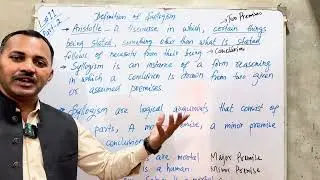 #11
Part-2
Definition of Syllogism
Two Premises
• Aristotle - A discourse in which, certain things
being stated, something other than what is stated
follows of necessity from their being
Conclusion
• Syllogism is an instance of a form reasoning
in which a conclusion is drawn from two given
or assumed premises.
• Syllogism are logical arguments that consist of
parts, A mise, a minor premise
conclusion
are mortal Major Premise
is a human Minor Premise